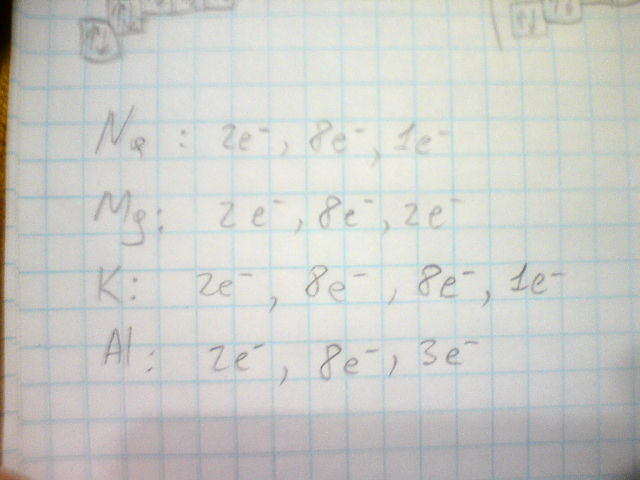 Na : 2e⁻, 8e⁻, 1e⁻
Mg: 2e⁻, 8e⁻, 2e⁻
K: 2e⁻, 8e⁻, 8e⁻, 1e⁻
Al: 2e⁻, 8e⁻, 3e⁻